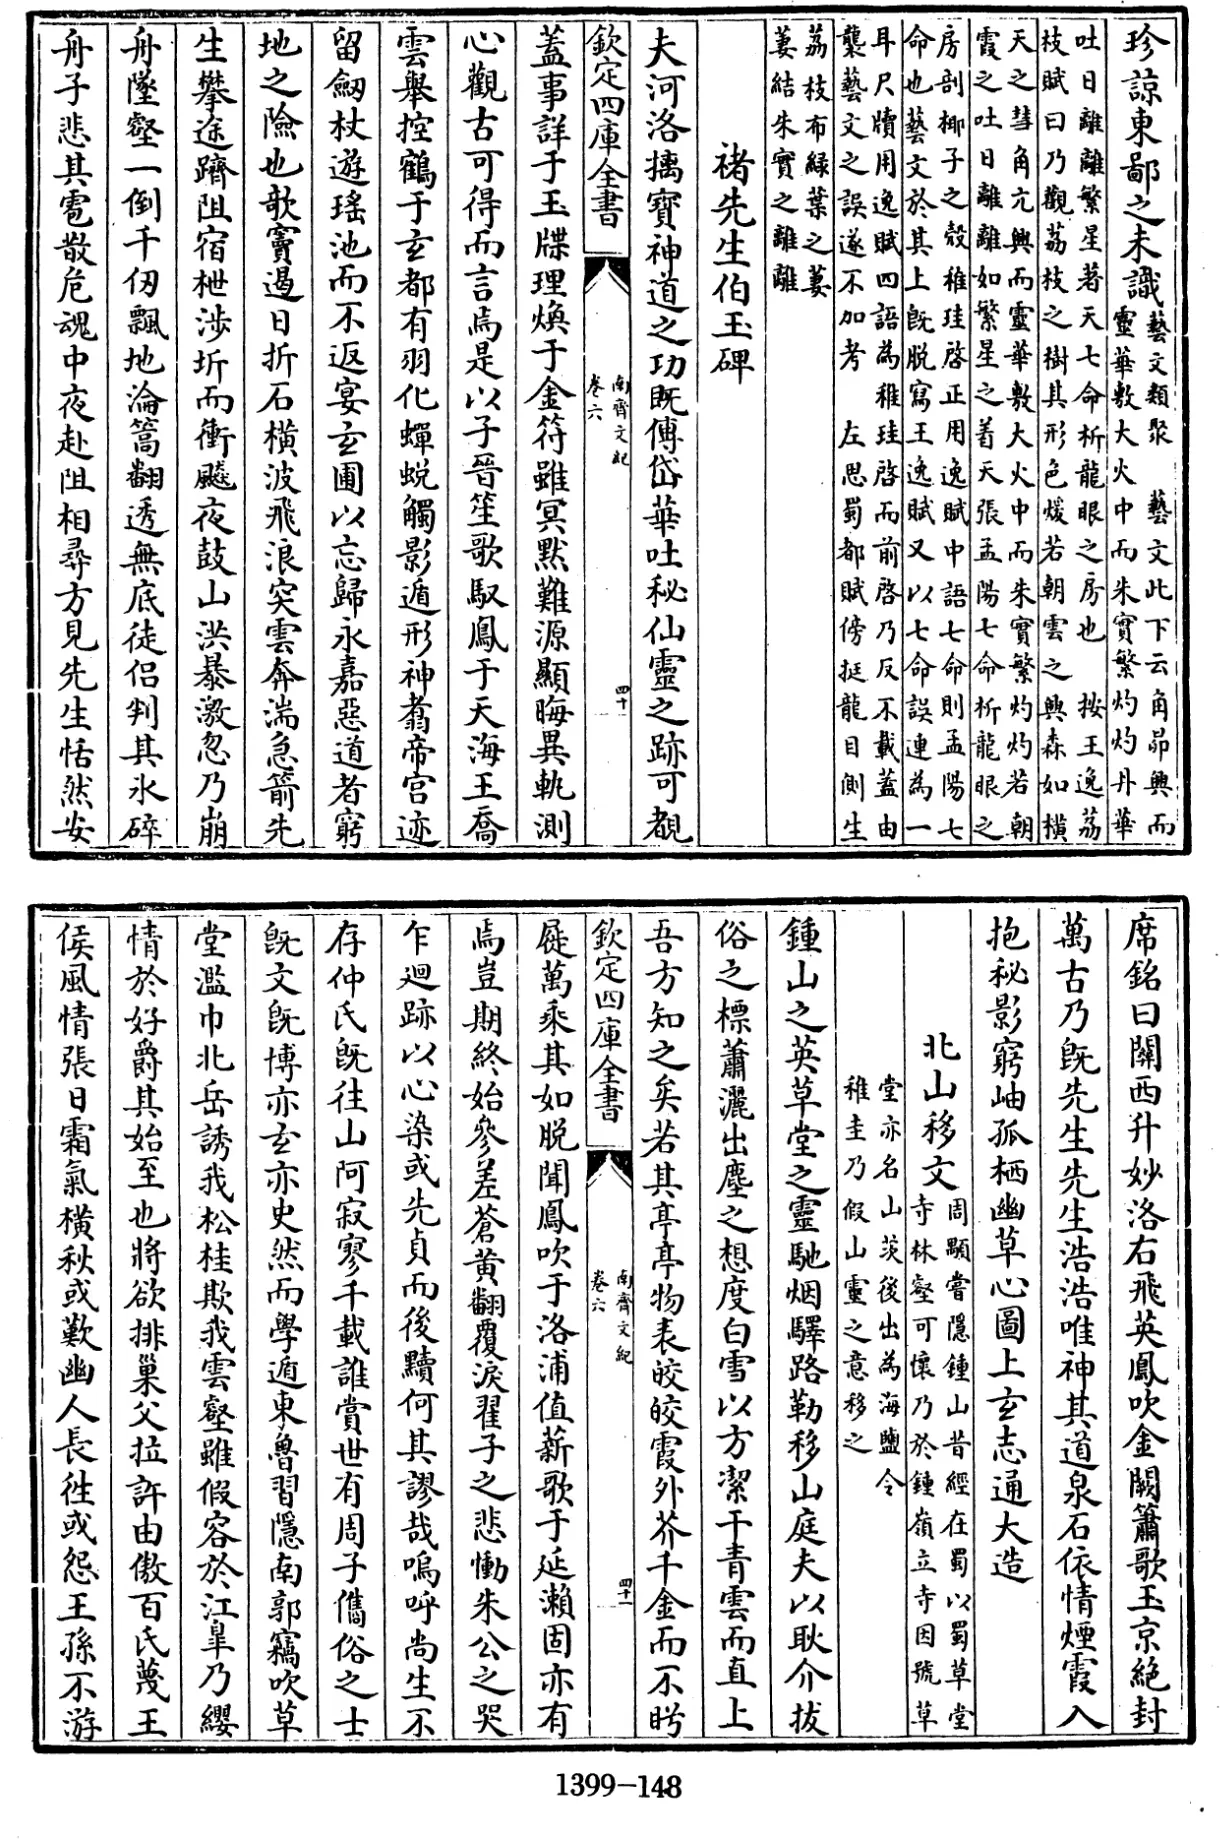 珍諒東鄙之未識藝文類聚　藝文此下云角昴興而
靈華敷大火中而朱實繁灼灼丹華
吐日離離繁星著天七命析龍眼之房也　按王逸荔
枝賦曰乃觀荔枝之樹其形色煖若朝雲之興森如橫
天之彗角亢興而靈華敷大火中而朱實繁灼灼若朝
霞之吐日離離如繁星之着天張孟陽七命析龍眼之
房剖椰子之殼稚珪啓正用逸賦中語七命則孟陽七
命也藝文於其上既脱寫王逸賦又以七命誤連為一
耳尺牘用逸賦四語為稚珪啓而前啓乃反不載蓋由
襲藝文之誤遂不加考　左思蜀都賦傍挺龍目側生
荔枝布緑葉之萋
萋結朱實之離離
褚先生伯玉碑
夫河洛摛寶神道之功既傳岱華吐秘仙靈之跡可覩
欽定四庫全書
南齊文紀
卷六
四十
蓋事詳于玉牒理煥于金符雖冥默難源顯晦異軌測
心觀古可得而言焉是以子晉笙歌馭鳳于天海王喬
雲舉控鶴于玄都有羽化蟬蛻觸影遁形神翥帝宫迹
留劒杖遊瑤池而不返宴玄圃以忘歸永嘉惡道者窮
地之險也欹竇遏日折石橫波飛浪突雲奔湍急箭先
生攀途躋阻宿枻涉圻而衝飈夜鼓山洪暴激忽乃崩
舟墜壑一倒千仞飄地淪篙翻透無底徒侣判其氷碎
舟子悲其雹散危魂中夜赴阻相尋方見先生恬然安
席銘曰關西升妙洛右飛英鳳吹金闕簫歌玉京絶封
萬古乃既先生先生浩浩唯神其道泉石依情煙霞入
抱秘影窮岫孤栖幽草心圖上玄志通大造
北山移文周顒嘗隱鍾山昔經在蜀以蜀草堂
寺林壑可懷乃於鍾嶺立寺因號草
堂亦名山茨後出為海鹽令
稚圭乃假山靈之意移之
鍾山之英草堂之靈馳烟驛路勒移山庭夫以耿介拔
俗之標蕭灑出塵之想度白雪以方潔干青雲而直上
吾方知之矣若其亭亭物表皎皎霞外芥千金而不眄
欽定四庫全書
南齊文紀
卷六
四十一
屣萬乘其如脱聞鳳吹于洛浦值薪歌于延瀨固亦有
焉豈期終始參差蒼黄翻覆淚翟子之悲慟朱公之哭
乍迴跡以心染或先貞而後黷何其謬哉嗚呼尚生不
存仲氏既往山阿寂寥千載誰賞世有周子儁俗之士
既文既博亦玄亦史然而學遁東魯習隱南郭竊吹草
堂濫巾北岳誘我松桂欺我雲壑雖假容於江臯乃纓
情於好爵其始至也將欲排巢父拉許由傲百氏蔑王
侯風情張日霜氣橫秋或歎幽人長徃或怨王孫不游
1399-148